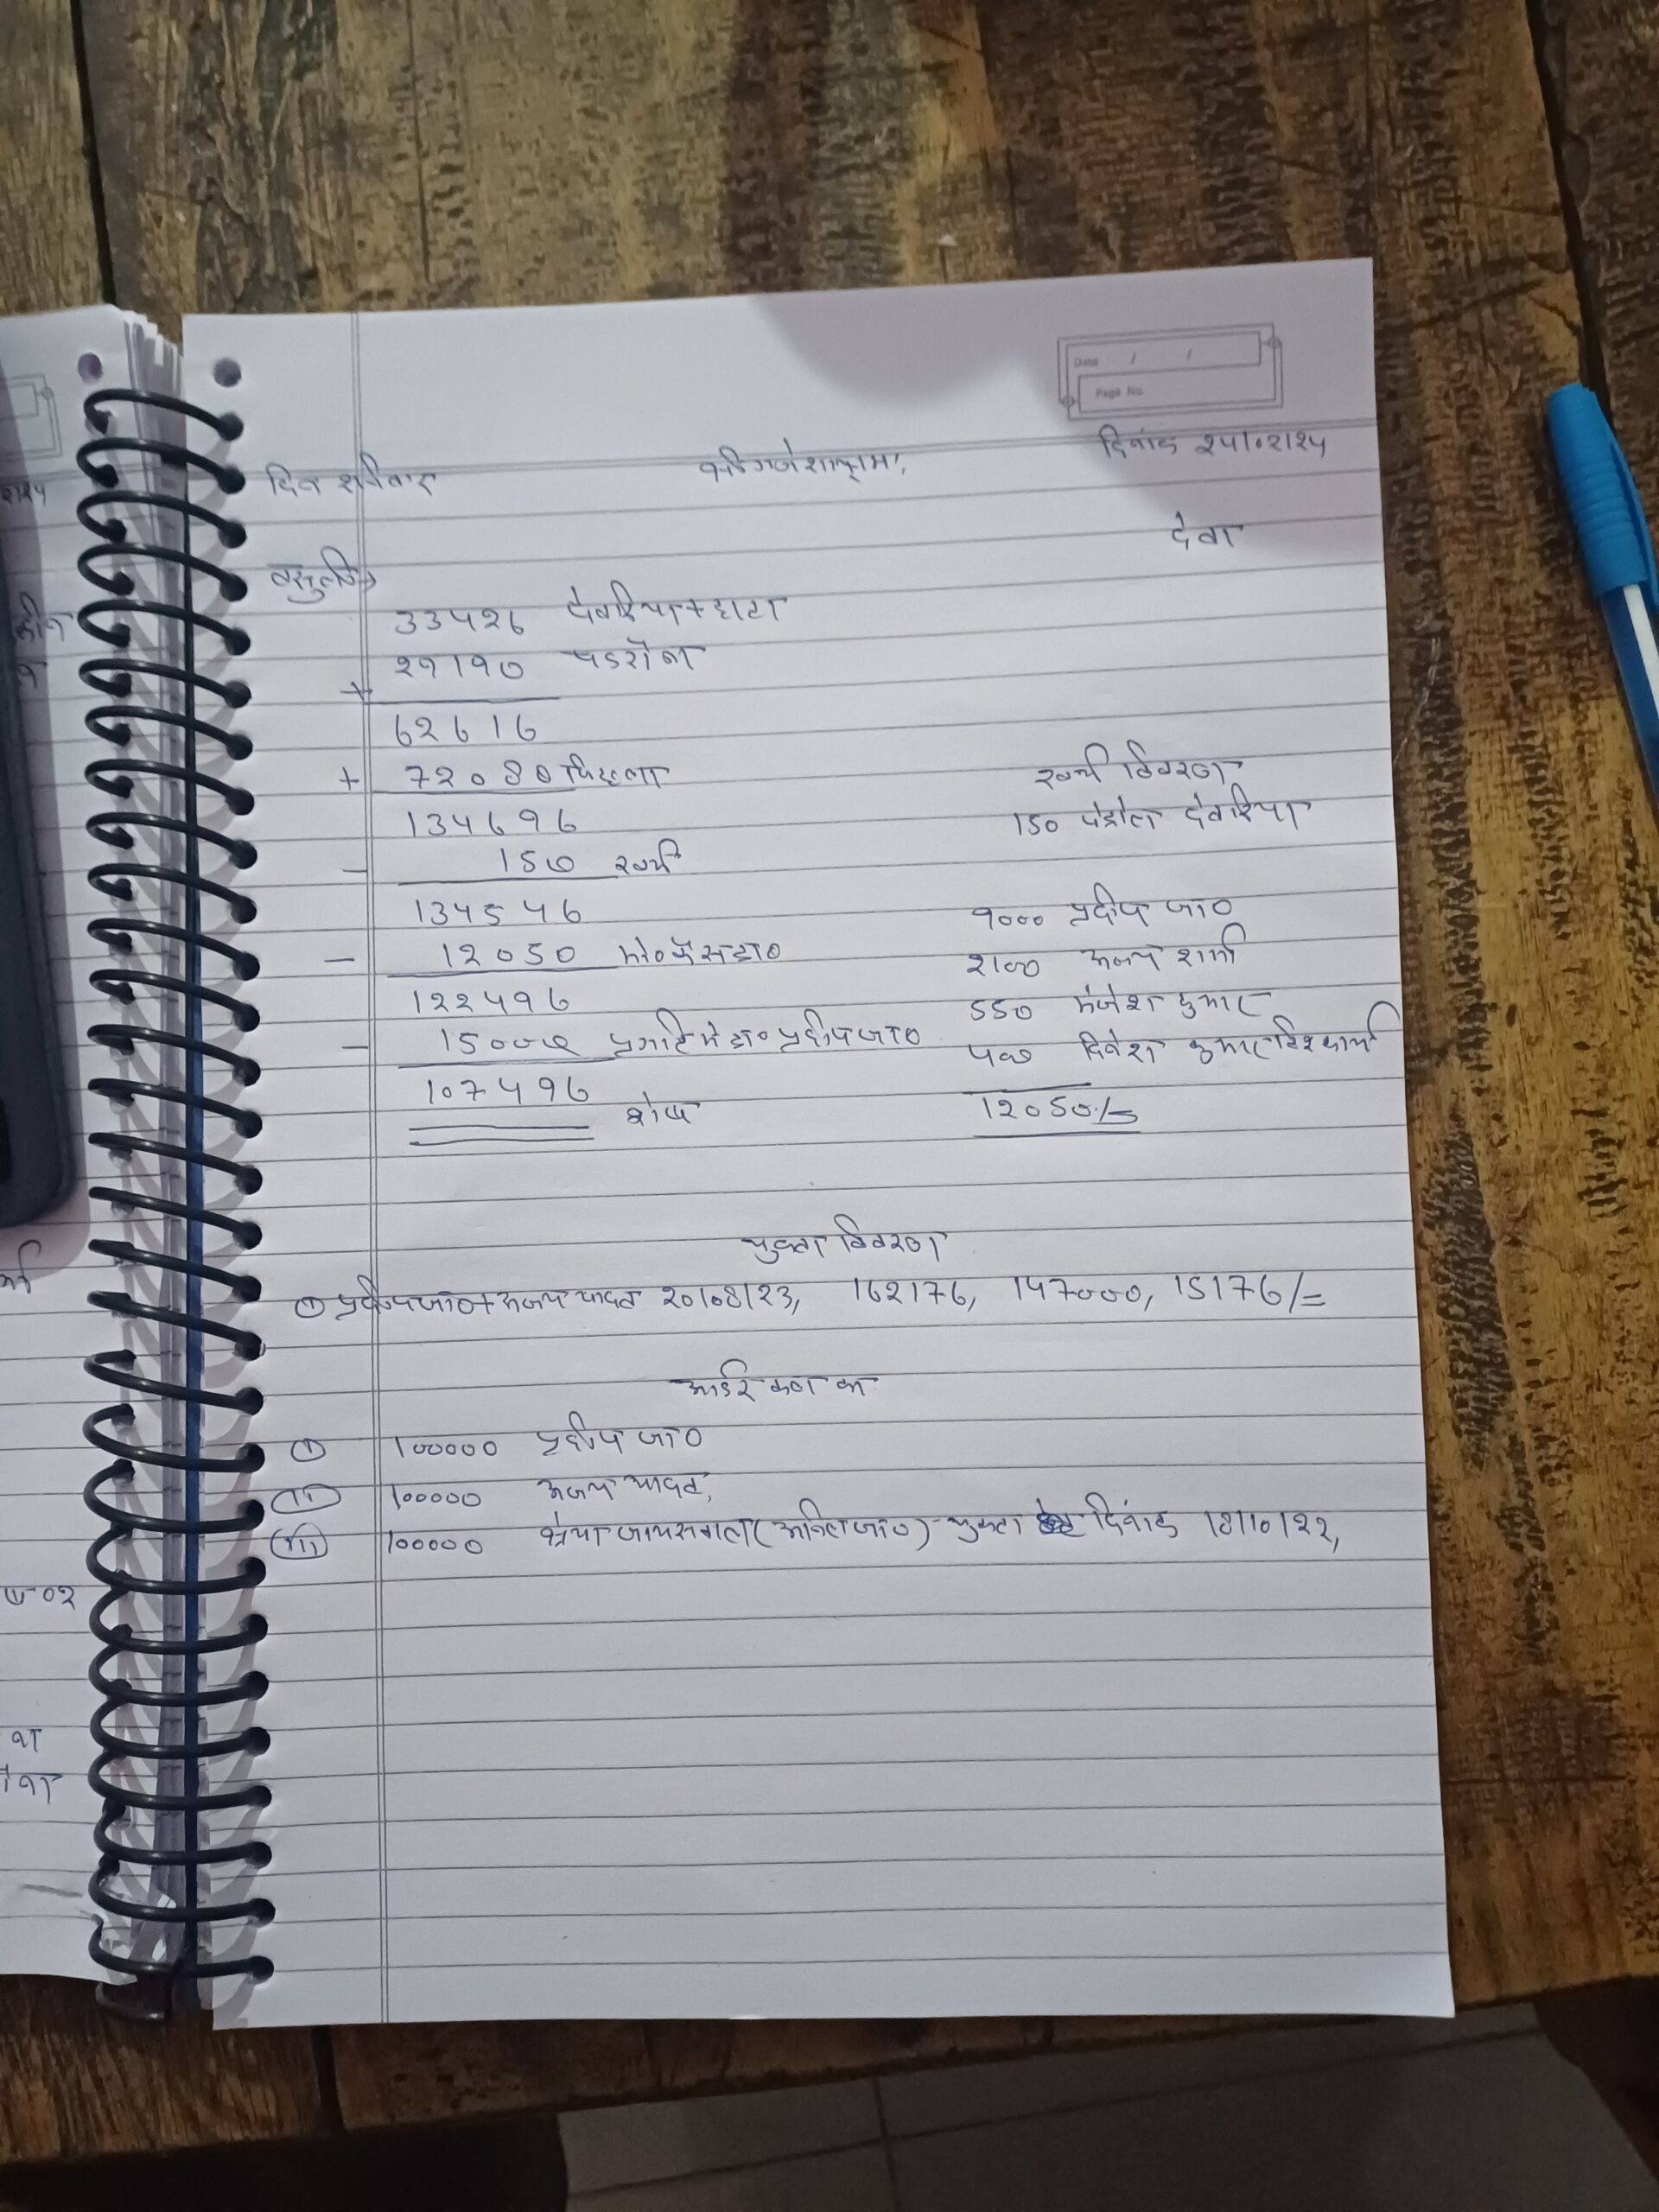 Date / /
Page No.
दिन शनिवार श्री गणेशाय नमः, दिनांक २५।०२।२५
देवा
वसुली
33426 देवरिया + हाटा
29190 पडरौना
+
62616
+ 72080 पिछला
134696
- 150 खर्च
134546
- 12050
122496
- 15000 प्रदीप जा०
107496 शेष
खर्चा विवरण
150 पेट्रोल देवरिया
9000 प्रदीप जा०
2100 अजय शर्मा
550 कुमार
400 दिनेश कुमार विश्वकर्मा
12050/=
चुकता विवरण
① प्रदीप जा० + अजय यादव 20/08/23, 162176, 147000, 15176/=
आर्डर
(i) 100000 प्रदीप जा०
(ii) 100000 अजय यादव,
(iii) 100000 श्रेया जायसवाल (अनिल जा०) - चुकता दिनांक 18/10/22,